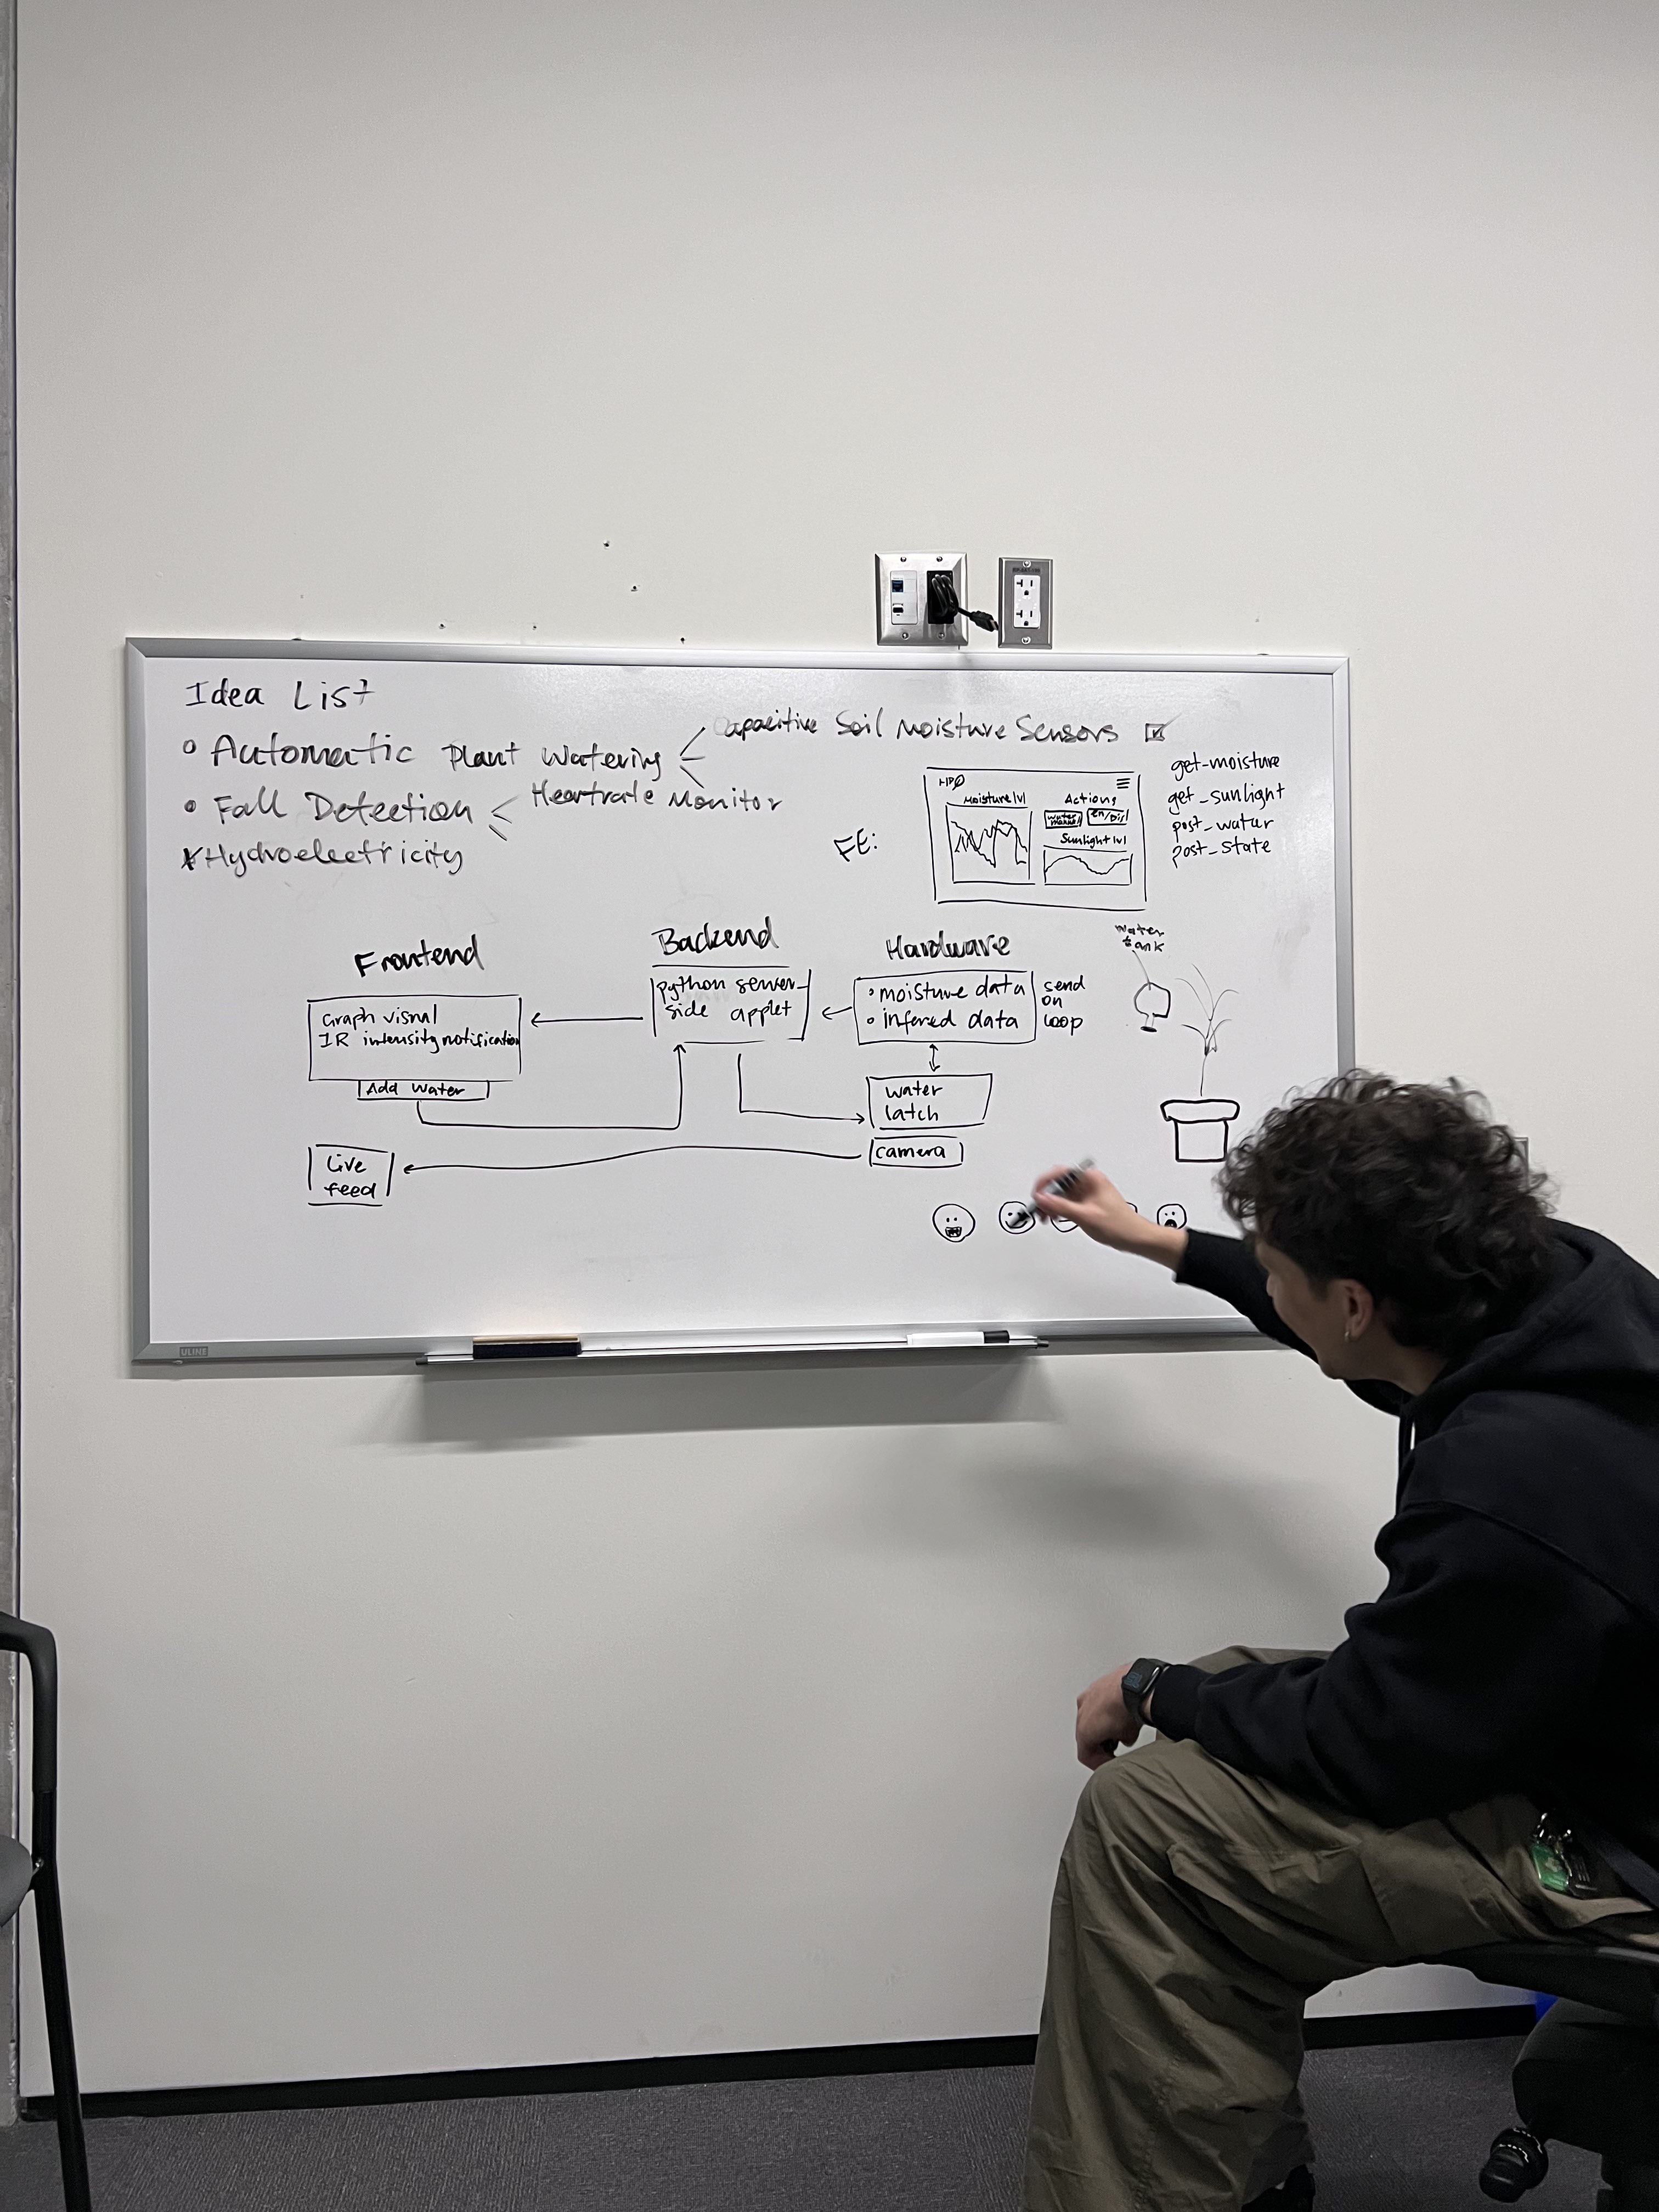 Idea List
Automatic Plant Watering
Capacitive Soil Moisture Sensors
Fall Detection
Heartrate Monitor
Hydroelectricity
FE:
Moisture lvl
Actions
water
en/Dis
Sunlight lvl
get-moisture
get_sunlight
post_water
post_state
Frontend
Graph visual
IR intensity notification
Add Water
Live
feed
Backend
python server-
side applet
Hardware
moisture data
infered data
send
on
loop
water
latch
camera
water
tank
ULINE